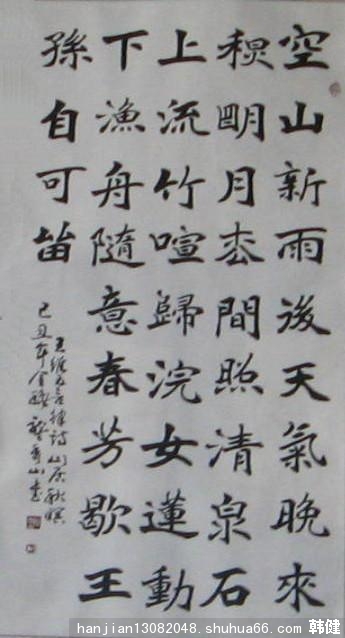 空山新雨後天氣晚來
秋眀月枩間照清泉石
上流竹喧歸浣女蓮動
下漁舟隨意春芳歇王
孫自可留
王維五言律詩山居秋暝
己丑年金秋山書
hanjian13082048.shuhua66.com 韩健